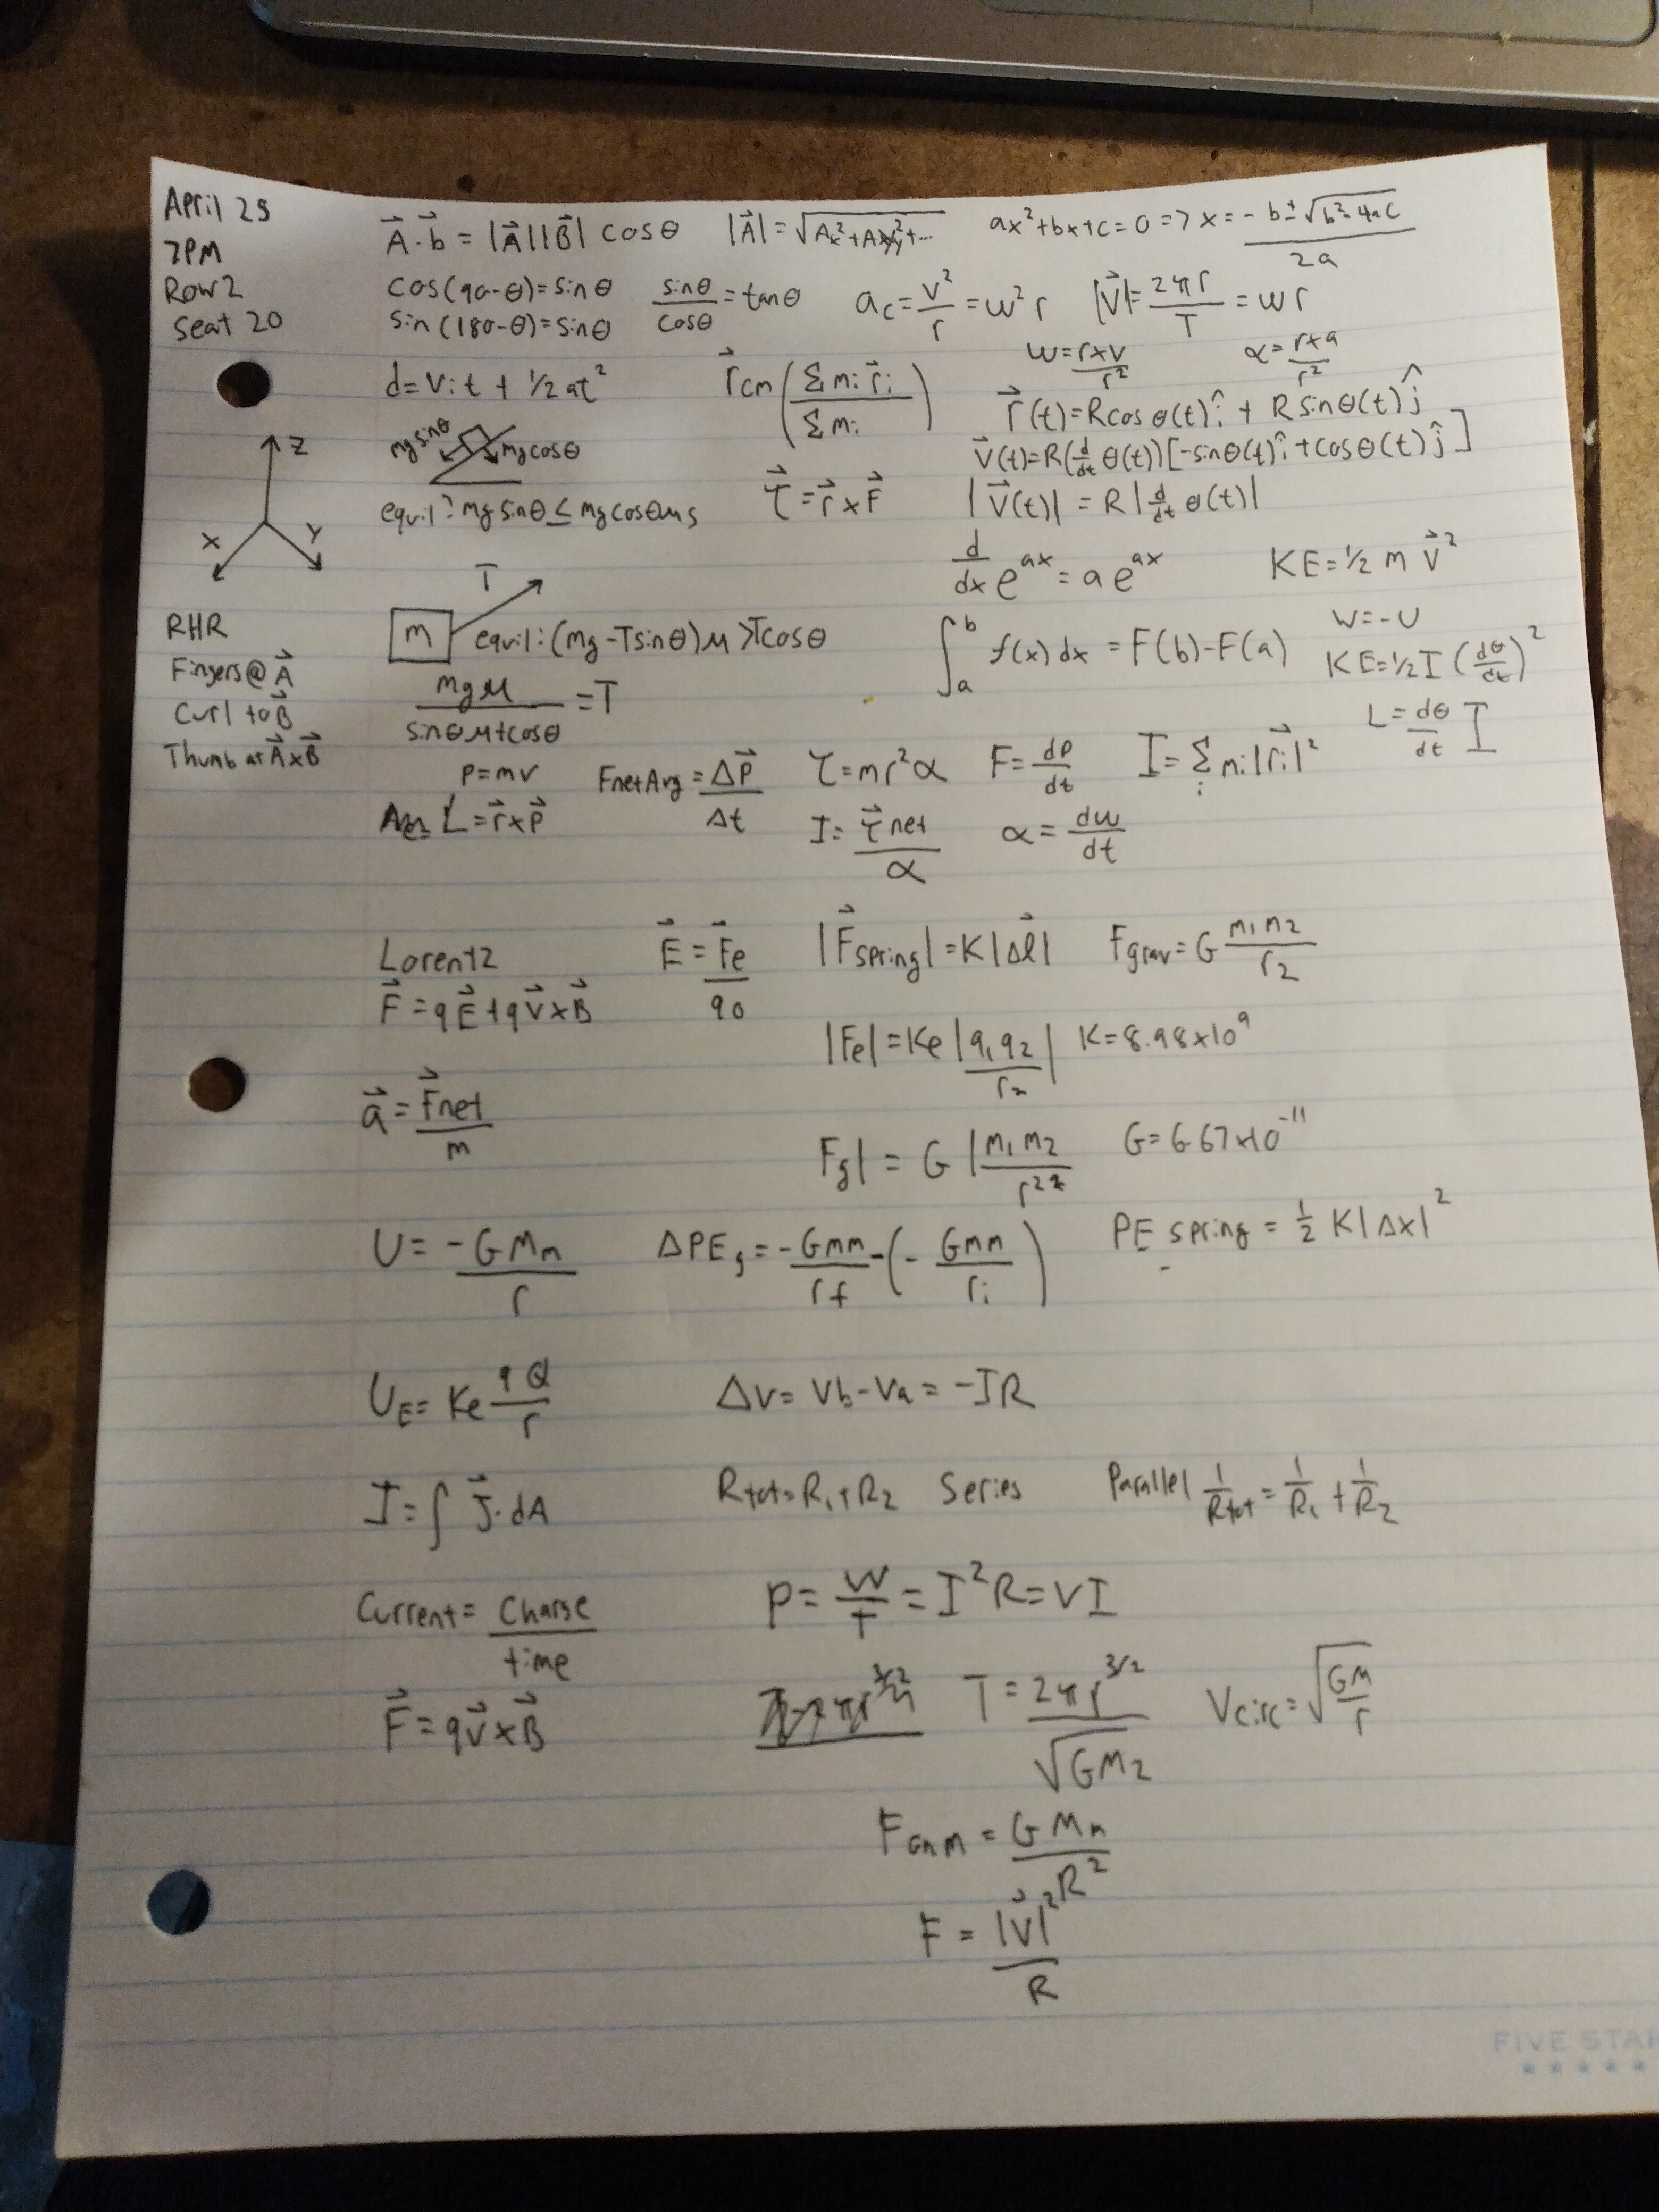 April 25
7PM
Row 2
Seat 20
A⃗·b⃗ = |A⃗||B⃗| cosθ   |A⃗| = √(Ax²+Ay²+...)   ax²+bx+c=0 => x = (-b±√(b²-4ac))/2a
cos(90-θ)=sinθ   sinθ/cosθ = tanθ   ac = v²/r = ω²r   |V⃗| = 2πr/T = ωr
sin(180-θ)=sinθ
ω = r×v/r²   α = r×a/r²
d = Vit + 1/2 at²   r⃗cm (Σmir⃗i/Σmi)   r⃗(t)=Rcosθ(t)î + Rsinθ(t)ĵ
mgsinθ   mgcosθ   V⃗(t)=R(d/dt θ(t))[-sinθ(t)î+cosθ(t)ĵ]
Z
X   Y
equil? mgsinθ ≤ mgcosθμs   τ⃗ = r⃗×F⃗   |V⃗(t)| = R|d/dt θ(t)|
d/dx e^ax = ae^ax   KE = 1/2 m V⃗²
T
m   equil: (mg-Tsinθ)μ>Tcosθ   ∫ₐᵇ f(x)dx = F(b)-F(a)   W=-U
KE = 1/2 I (dθ/dt)²
RHR
Fingers @ A⃗
Curl to B⃗
Thumb at A⃗×B⃗
mgμ/(sinθμ+cosθ) = T   L = dθ/dt I
P=mv   FnetAvg = ΔP⃗/Δt   τ=mr²α   F = dP/dt   I = Σᵢ mi|r⃗i|²
L⃗=r⃗×p⃗   I = τ⃗net/α   α = dω/dt
Lorentz   E⃗ = F⃗e/q0   |F⃗spring| = K|Δl⃗|   Fgrav = G m1m2/r2
F⃗ = qE⃗+qV⃗×B⃗
|Fe| = Ke |q1q2/r2|   K=8.98×10⁹
a⃗ = F⃗net/m
Fg| = G |m1m2/r²   G=6.67×10⁻¹¹
U = -GMm/r   ΔPEg = -Gmm/rf - (-Gmm/ri)   PE spring = 1/2 K|Δx|²
UE = Ke qQ/r   ΔV = Vb-Va = -IR
I = ∫ J⃗·dA   Rtot=R1+R2 Series   Parallel 1/Rtot = 1/R1 + 1/R2
Current = Charge/time   P = W/T = I²R=VI
F⃗ = qv⃗×B⃗   T = 2πr^3/2/√GM2   Vcirc = √(GM/r)
FGnM = GMm/R²
F = |V⃗|²/R
FIVE STAR